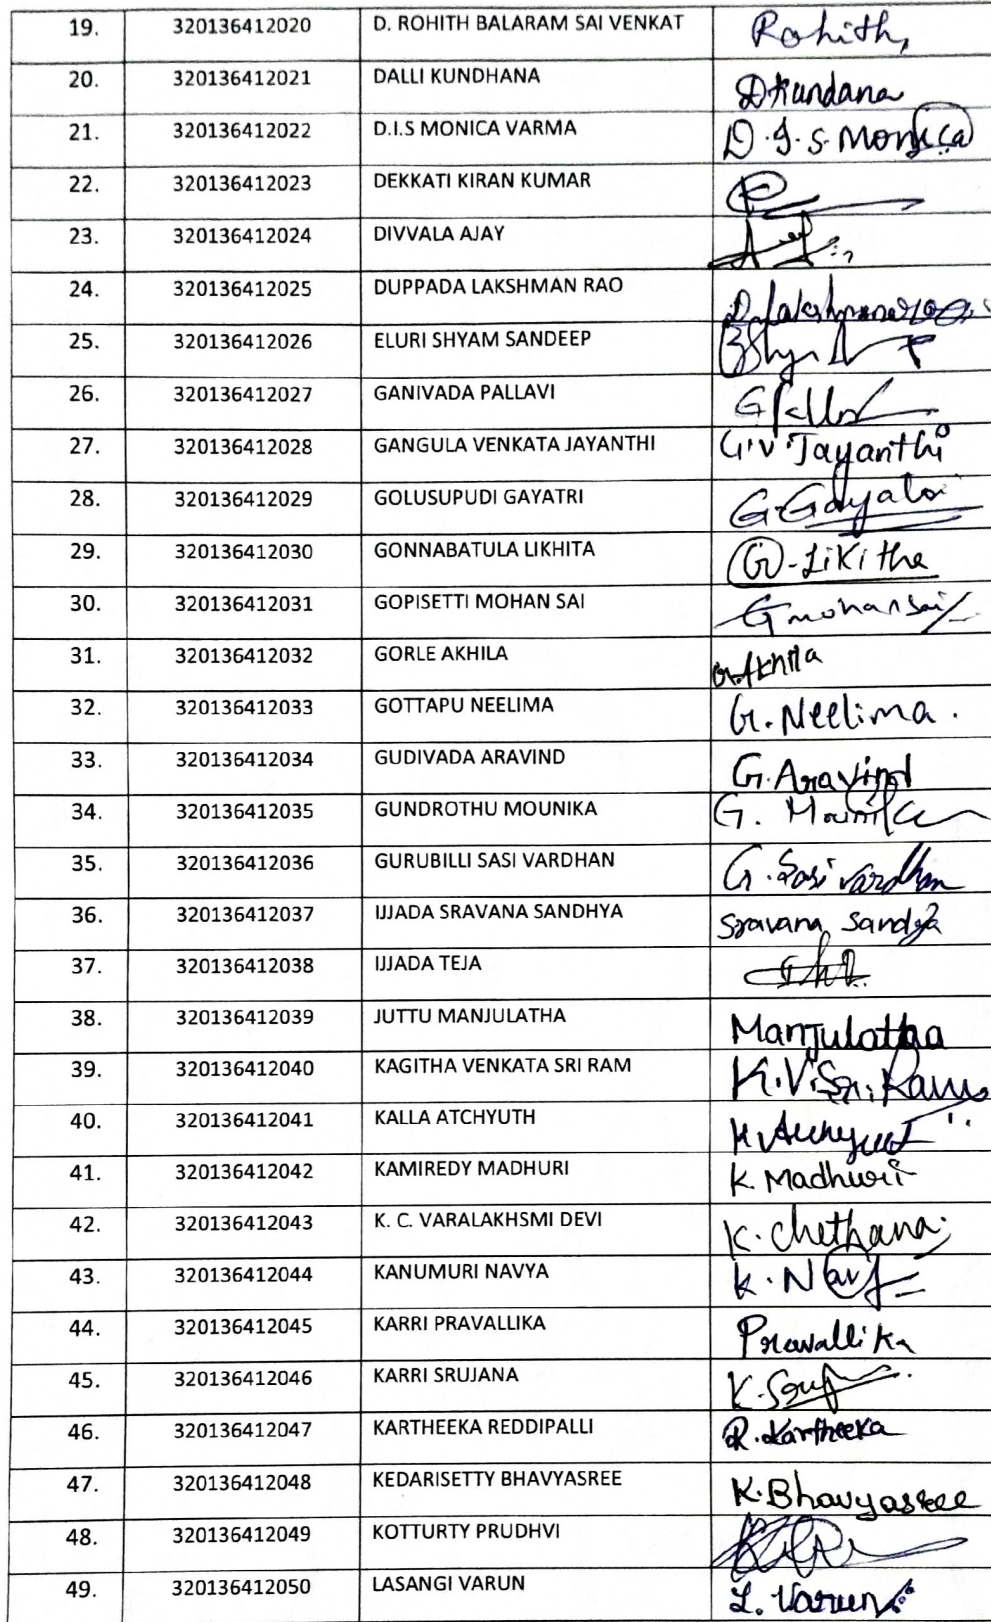 19. 320136412020 D. ROHITH BALARAM SAI VENKAT Rohith,
20. 320136412021 DALLI KUNDHANA D Kundana
21. 320136412022 D.I.S MONICA VARMA D.I.S. Monica
22. 320136412023 DEKKATI KIRAN KUMAR
23. 320136412024 DIVVALA AJAY
24. 320136412025 DUPPADA LAKSHMAN RAO D. Lakshmanarao
25. 320136412026 ELURI SHYAM SANDEEP
26. 320136412027 GANIVADA PALLAVI
27. 320136412028 GANGULA VENKATA JAYANTHI G.V.Jayanthi
28. 320136412029 GOLUSUPUDI GAYATRI G. Gayatri
29. 320136412030 GONNABATULA LIKHITA G-Likitha
30. 320136412031 GOPISETTI MOHAN SAI G mohan sai
31. 320136412032 GORLE AKHILA G.Akhila
32. 320136412033 GOTTAPU NEELIMA G. Neelima.
33. 320136412034 GUDIVADA ARAVIND G. Aravind
34. 320136412035 GUNDROTHU MOUNIKA G. Mounika
35. 320136412036 GURUBILLI SASI VARDHAN G. Sasi vardhan
36. 320136412037 IJJADA SRAVANA SANDHYA Sravana Sandya
37. 320136412038 IJJADA TEJA
38. 320136412039 JUTTU MANJULATHA Manjulatha
39. 320136412040 KAGITHA VENKATA SRI RAM K.V.Sri.Ram
40. 320136412041 KALLA ATCHYUTH K. Atchyut
41. 320136412042 KAMIREDY MADHURI K. Madhuri
42. 320136412043 K. C. VARALAKHSMI DEVI K. Chethana.
43. 320136412044 KANUMURI NAVYA K. Navy
44. 320136412045 KARRI PRAVALLIKA Pravallika
45. 320136412046 KARRI SRUJANA
46. 320136412047 KARTHEEKA REDDIPALLI R. Kartheeka
47. 320136412048 KEDARISETTY BHAVYASREE K. Bhavyasree
48. 320136412049 KOTTURTY PRUDHVI
49. 320136412050 LASANGI VARUN L. Varun